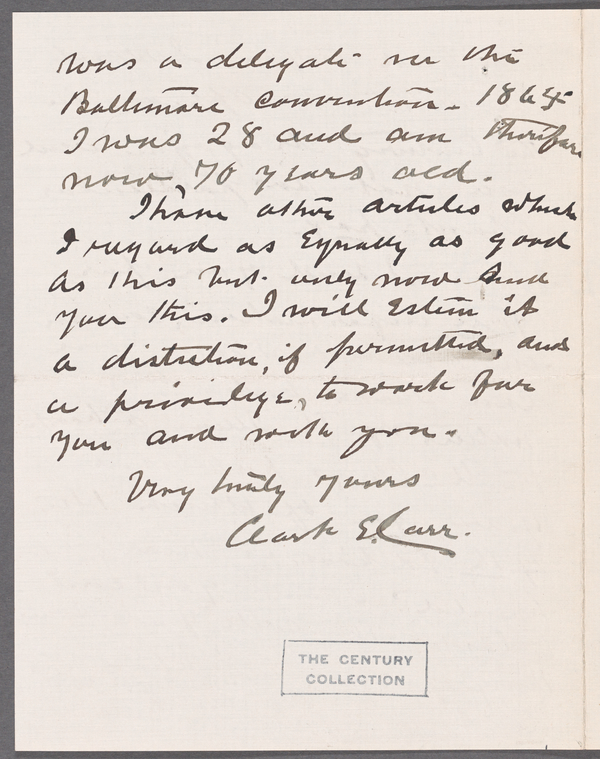 was a delegate in the
Baltimore convention - 1864
I was 28 and am therefore
now 70 years old.
I have other articles which
I regard as equally as good
as this but only now send
you this. I will esteem it
a distinction, if permitted, and
a privilege, to work for
you and with you.
Very truly yours
Clark E. Carr.
THE CENTURY
COLLECTION